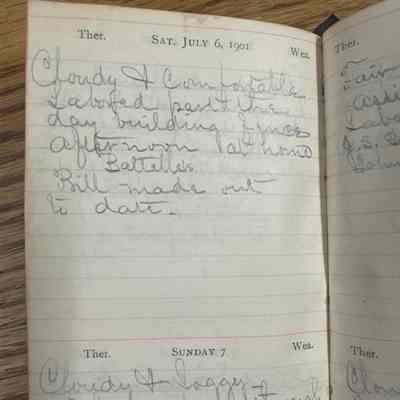 Ther. SAT. JULY 6, 1901. Wea.
Cloudy & Comfortable
Labored part the
day building fence
afternoon at home
Battelles
Bill made out
to date.
Ther. SUNDAY 7 Wea.
Cloudy & foggy
Ther.
Fair
Assi
Labo
J.S.
Ther.
Clou